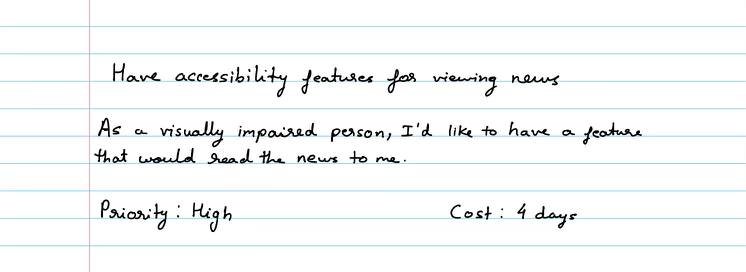 Have accessibility features for viewing news
As a visually impaired person, I'd like to have a feature
that would read the news to me.
Priority: High
Cost: 4 days